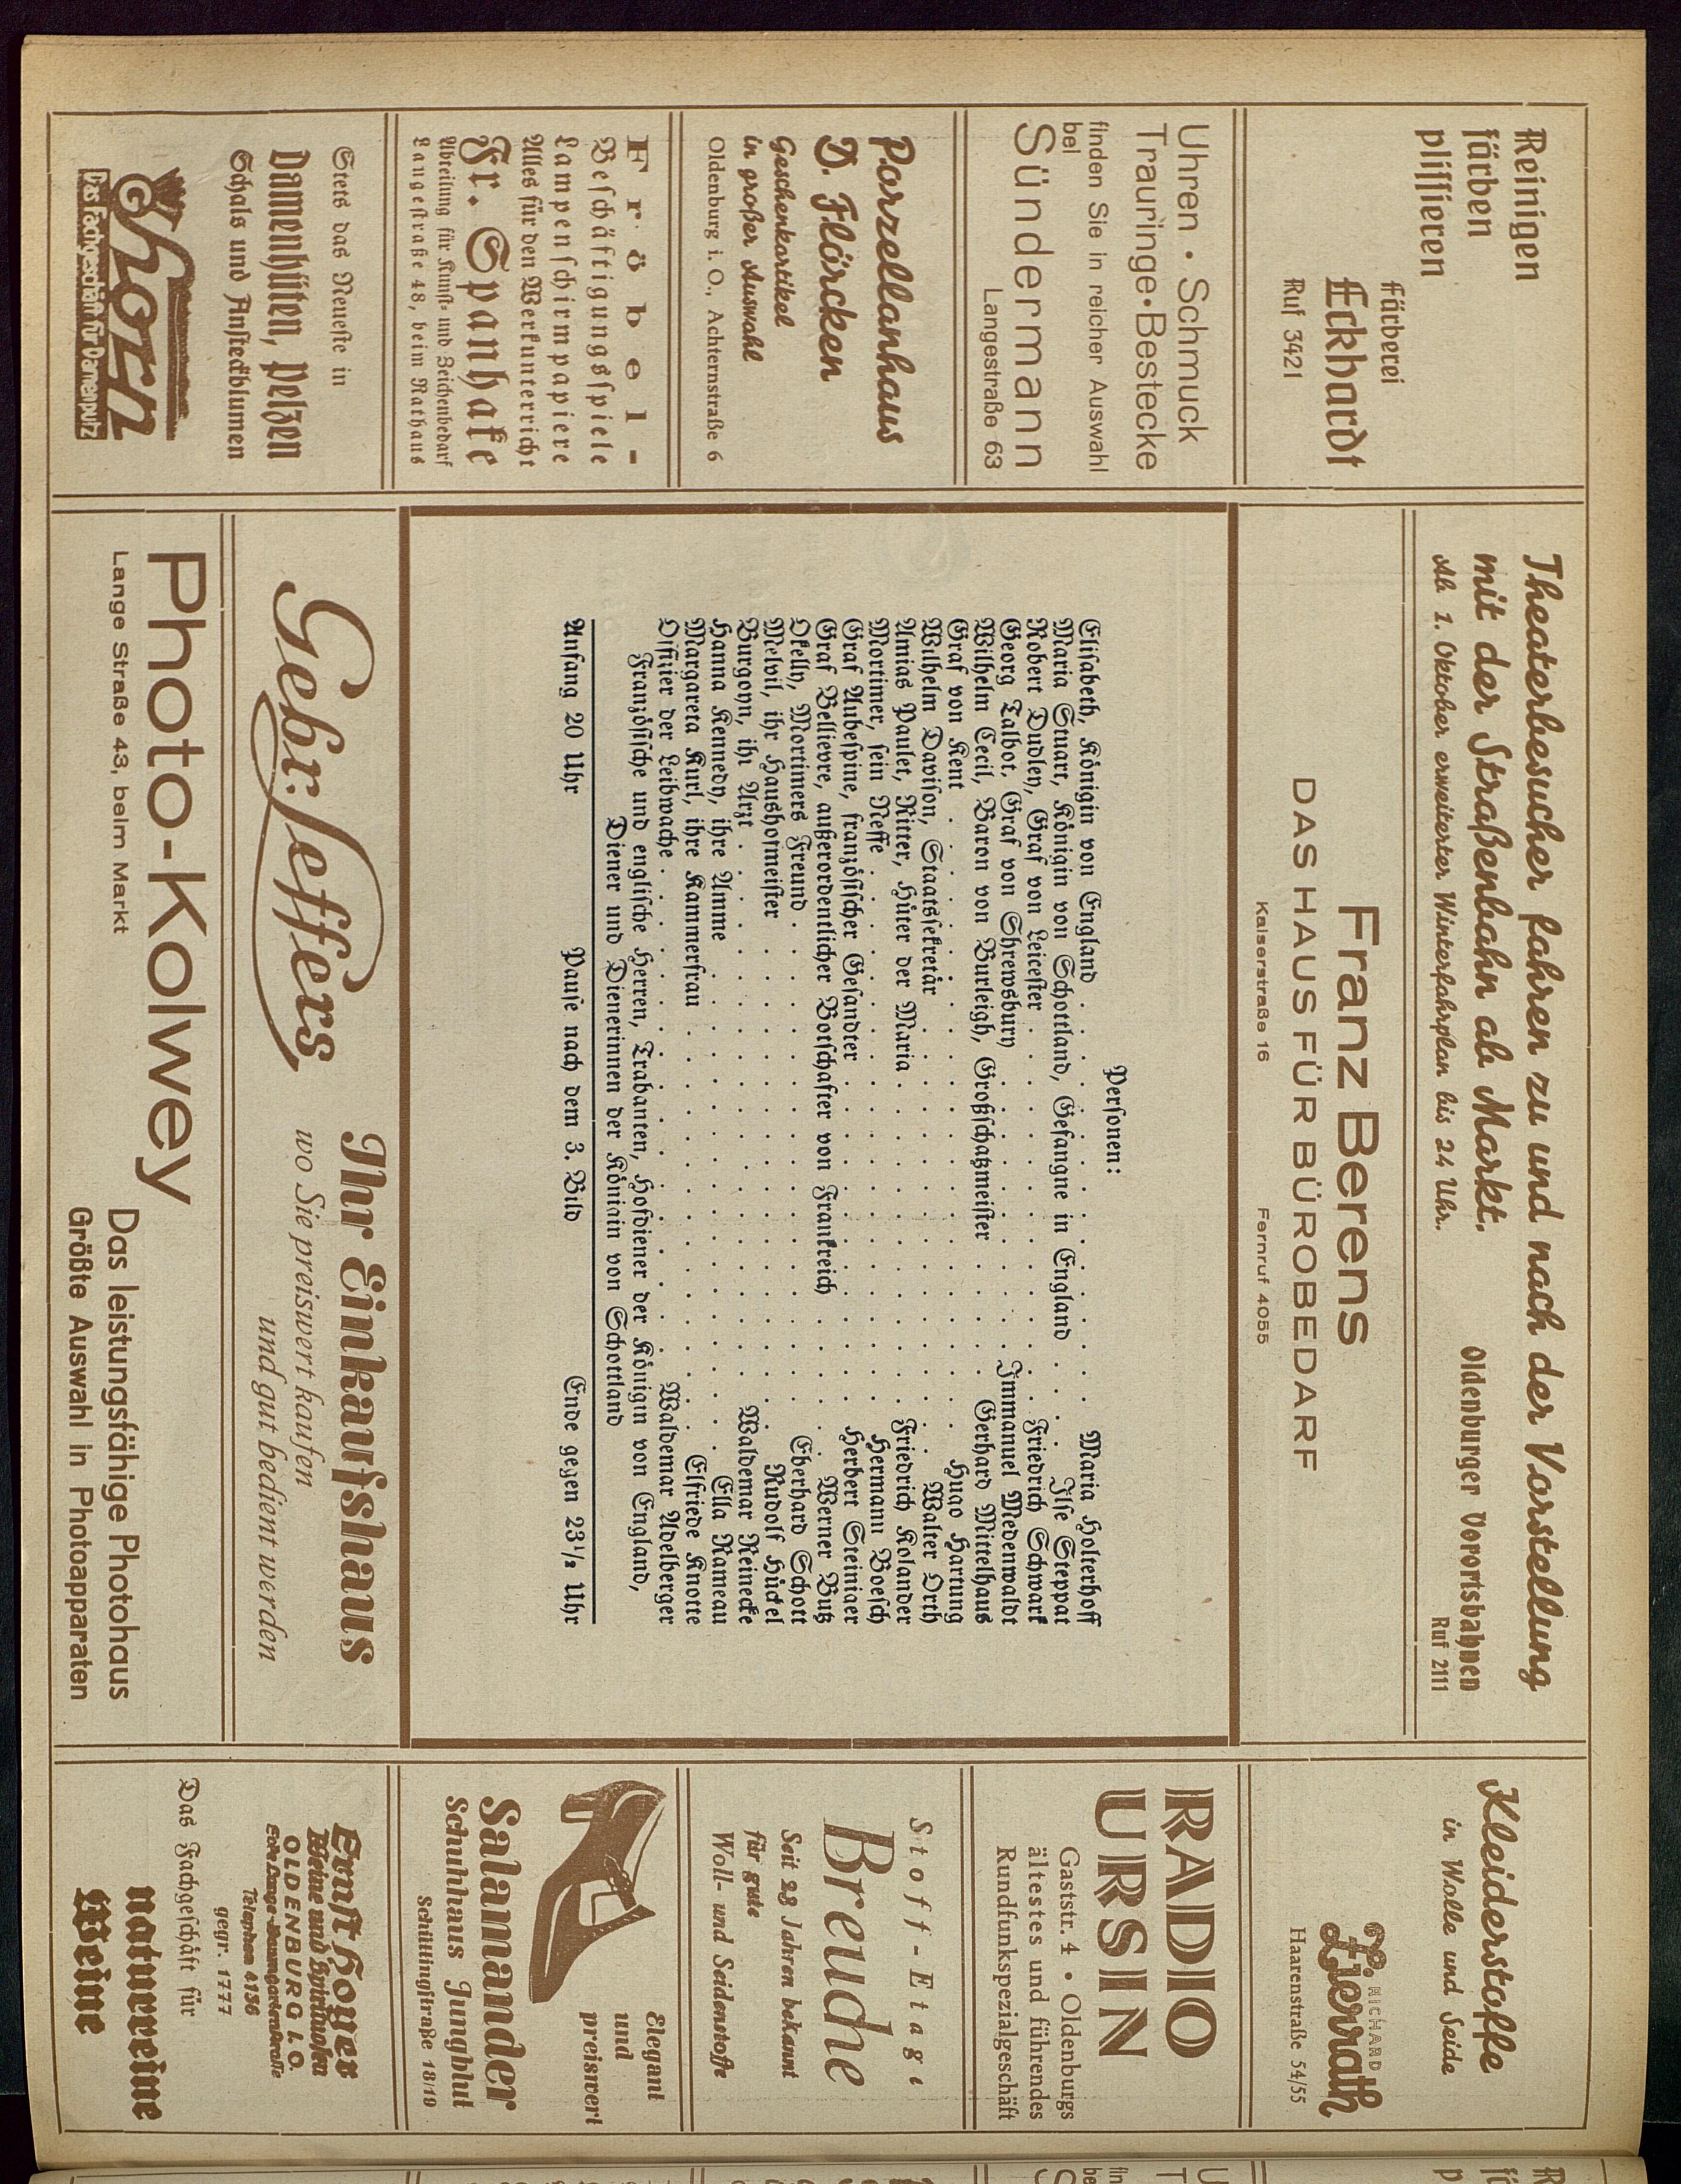 Reinigen
färben
plissieren
Färberei
Eckhardt
Ruf 3421
Uhren • Schmuck
Trauringe • Bestecke
finden Sie in reicher Auswahl
bei
Sündermann
Langestraße 63
Porzellanhaus
D. Flörcken
Geschenkartikel
in großer Auswahl
Oldenburg i. O., Achternstraße 6
Fröbel-
Beschäftigungsspiele
Lampenschirmpapiere
Alles für den Werkunterricht
Fr. Spanhake
Abteilung für Kunst- und Zeichenbedarf
Langestraße 48, beim Rathaus
Stets das Neueste in
Damenhüten, Pelzen
Schals und Ansteckblumen
Chorn
Das Fachgeschäft für Damenputz
Theaterbesucher fahren zu und nach der Vorstellung
mit der Straßenbahn ab Markt.
Ab 1. Oktober erweiterter Winterfahrplan bis 24 Uhr.
Oldenburger Vorortsbahnen
Ruf 2111
Franz Berens
DAS HAUS FÜR BÜROBEDARF
Kaiserstraße 16
Fernruf 4055
Personen:
Elisabeth, Königin von England . . . Maria Holterhoff
Maria Stuart, Königin von Schottland, Gefangne in England . . . Ilse Steppat
Robert Dudley, Graf von Leicester . . . Friedrich Schwark
Georg Talbot, Graf von Shrewsbury . . . Immanuel Medenwaldt
Wilhelm Cecil, Baron von Burleigh, Großschatzmeister . . . Gerhard Mittelhaus
Graf von Kent . . . Hugo Hartung
Wilhelm Davison, Staatssekretär . . . Walter Orth
Amias Paulet, Ritter, Hüter der Maria . . . Friedrich Kolander
Mortimer, sein Neffe . . . Hermann Boesch
Graf Aubespine, französischer Gesandter . . . Herbert Steiniger
Graf Bellievre, außerordentlicher Botschafter von Frankreich . . . Werner Butz
Okelly, Mortimers Freund . . . Eberhard Schott
Melvil, ihr Haushofmeister . . . Rudolf Hückel
Burgoyn, ihr Arzt . . . Waldemar Reinecke
Hanna Kennedy, ihre Amme . . . Ella Rameau
Margareta Kurl, ihre Kammerfrau . . . Elfriede Knotte
Offizier der Leibwache . . . Waldemar Adelberger
Französische und englische Herren, Trabanten, Hofdiener der Königin von England,
Diener und Dienerinnen der Königin von Schottland
Anfang 20 Uhr Pause nach dem 3. Bild Ende gegen 23½ Uhr
Gebr. Leffers
Ihr Einkaufshaus
wo Sie preiswert kaufen
und gut bedient werden
Photo-Kolwey
Lange Straße 43, beim Markt
Das leistungsfähige Photohaus
Größte Auswahl in Photoapparaten
Kleiderstoffe
in Wolle und Seide
RICHARD
Zierrath
Haarenstraße 54/55
RADIO
URSIN
Gaststr. 4 • Oldenburgs
ältestes und führendes
Rundfunkspezialgeschäft
Stoff-Etage
Breuche
Seit 28 Jahren bekannt
für gute
Woll- und Seidenstoffe
Elegant
und
preiswert
Salamander
Schuhhaus Jungblut
Schüttingstraße 18/19
Ernst Hoyer
Weine und Spirituosen
OLDENBURG i. O.
Ecke Lange-Baumgartenstraße
Telephon 4136
gegr. 1777
Das Fachgeschäft für
naturreine
Weine